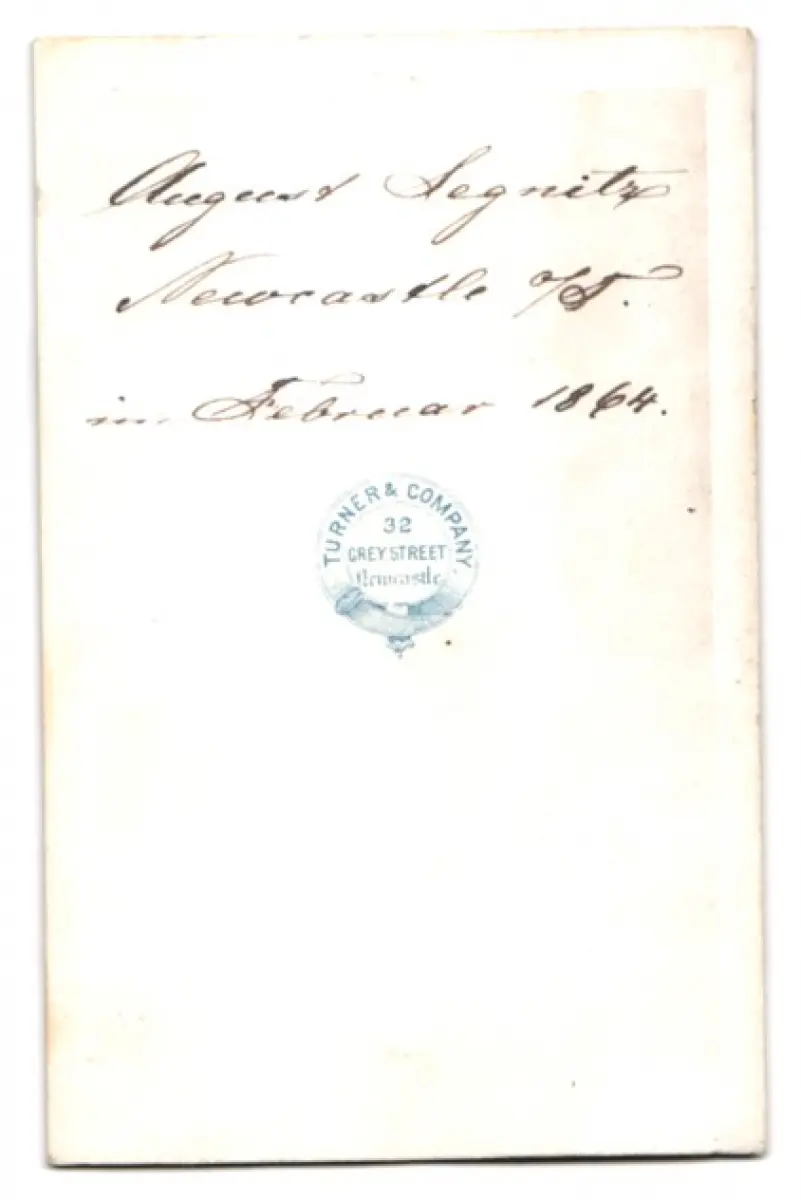 August Segnitz
Newcastle o/T.
im Februar 1864.
TURNER & COMPANY
32
GREY STREET
Newcastle